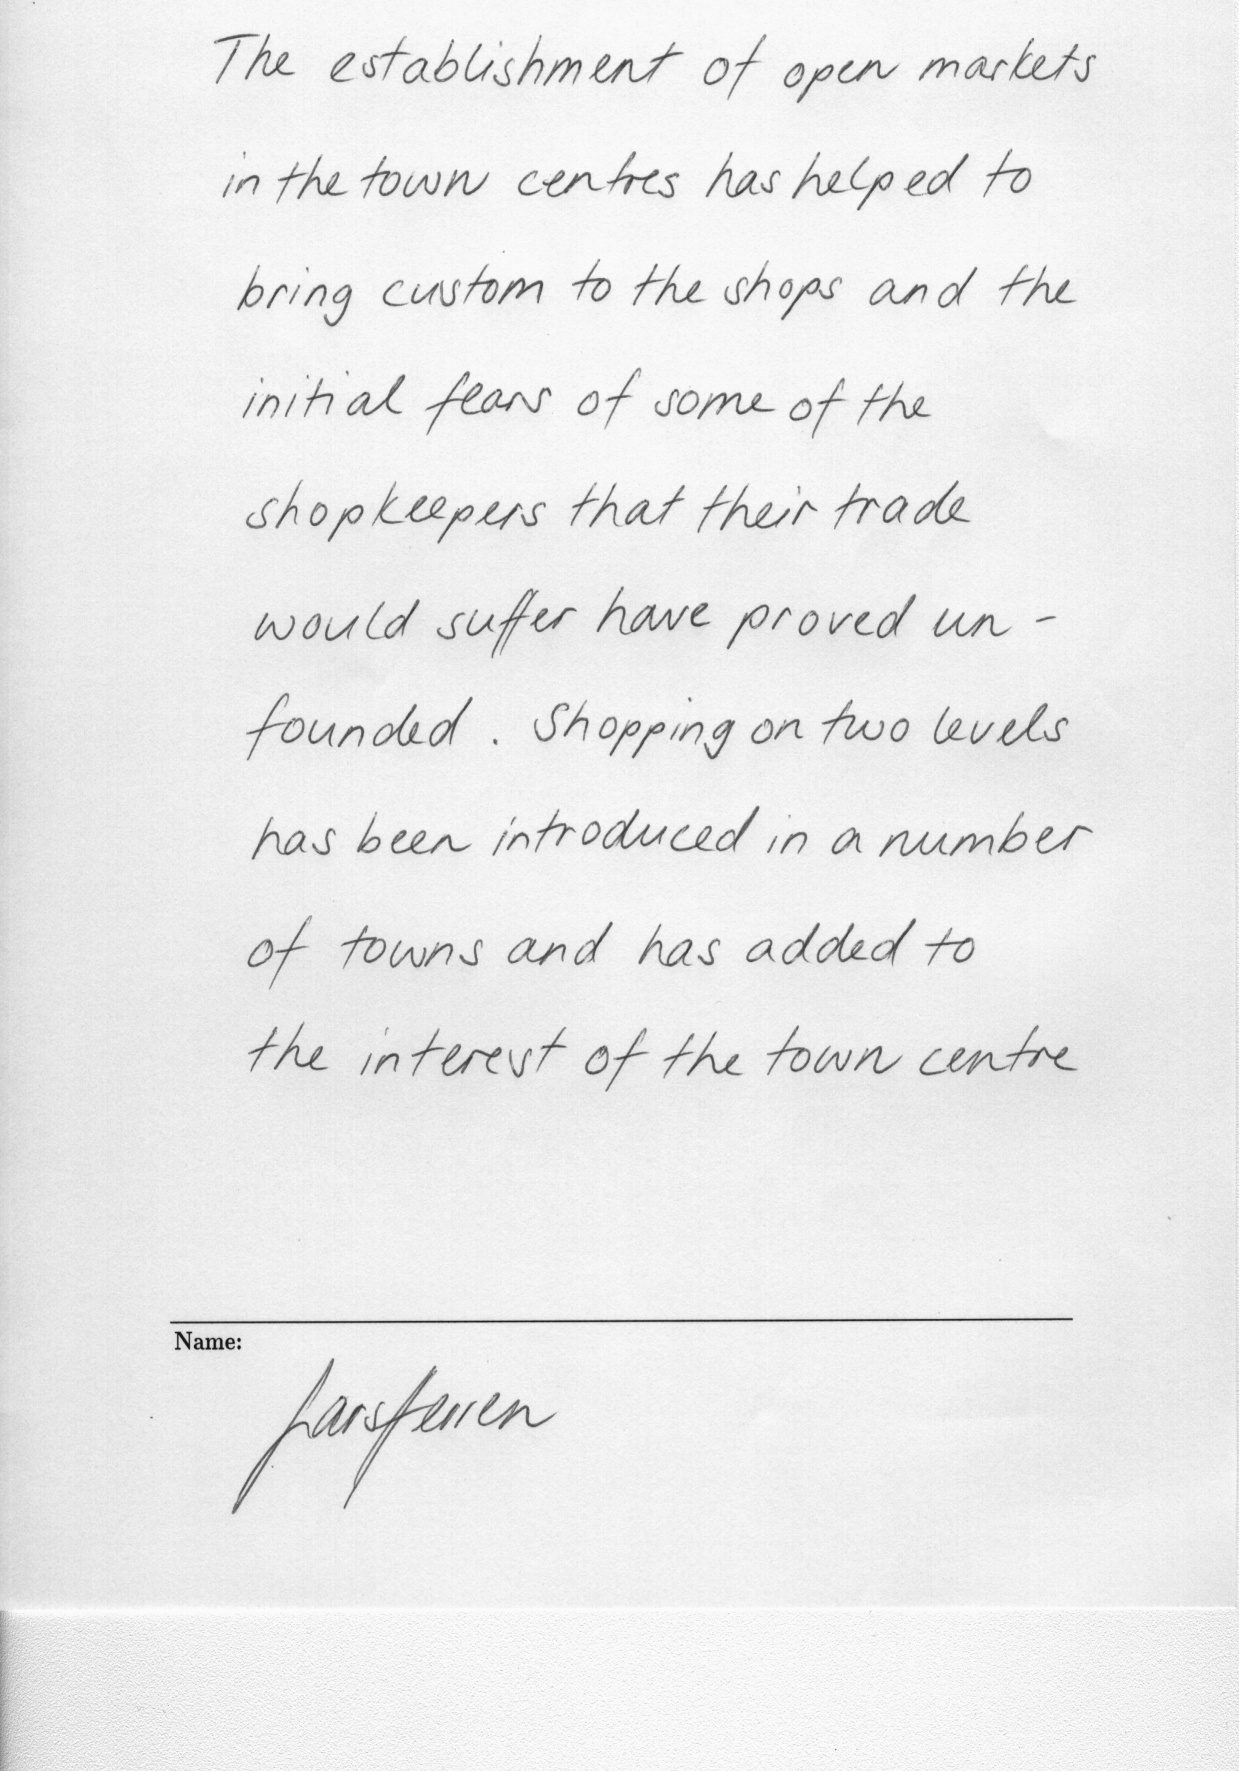 The establishment of open markets
in the town centres has helped to
bring custom to the shops and the
initial fears of some of the
shopkeepers that their trade
would suffer have proved un-
founded. Shopping on two levels
has been introduced in a number
of towns and has added to
the interest of the town centre
Name: